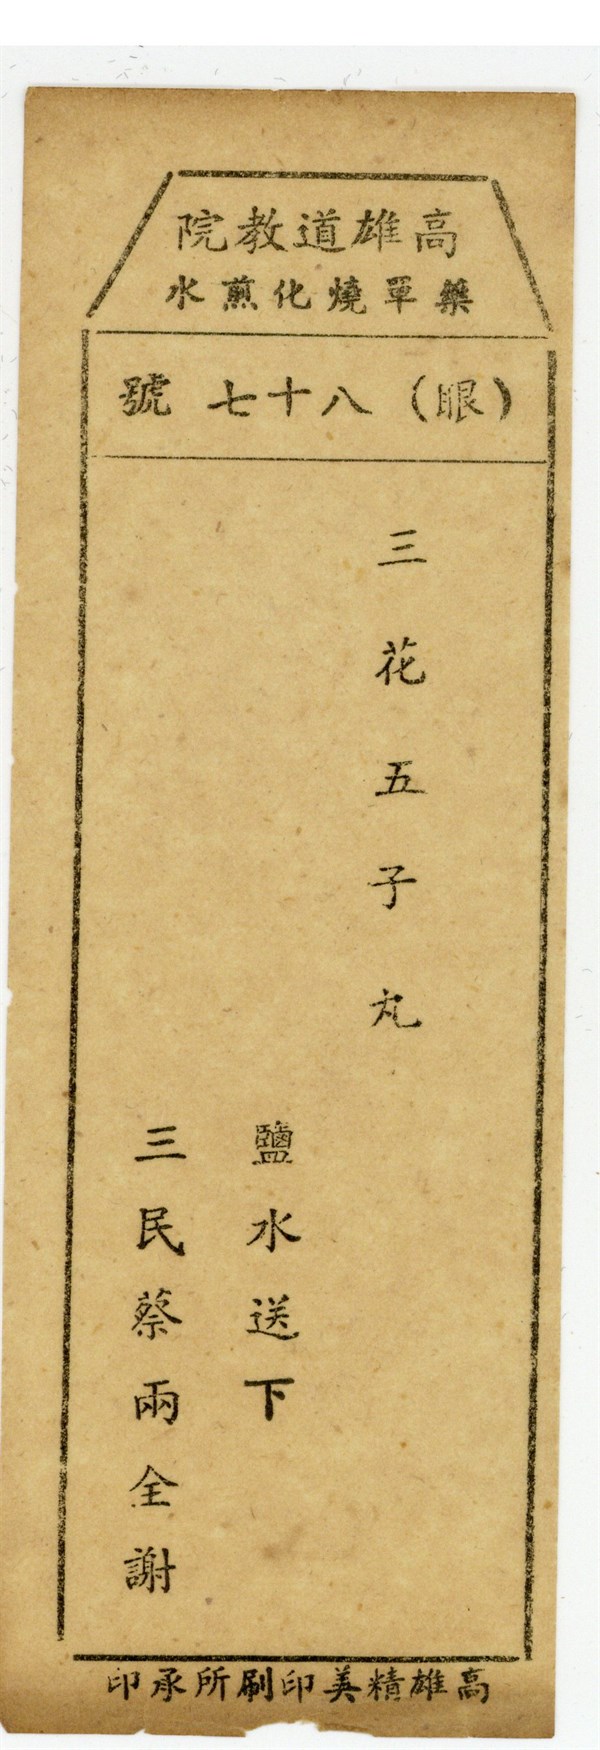 高雄道教院
藥單燒化煎水
（眼）八十七 號
三花五子丸
鹽水送下
三民蔡兩全謝
高雄精美印刷所承印